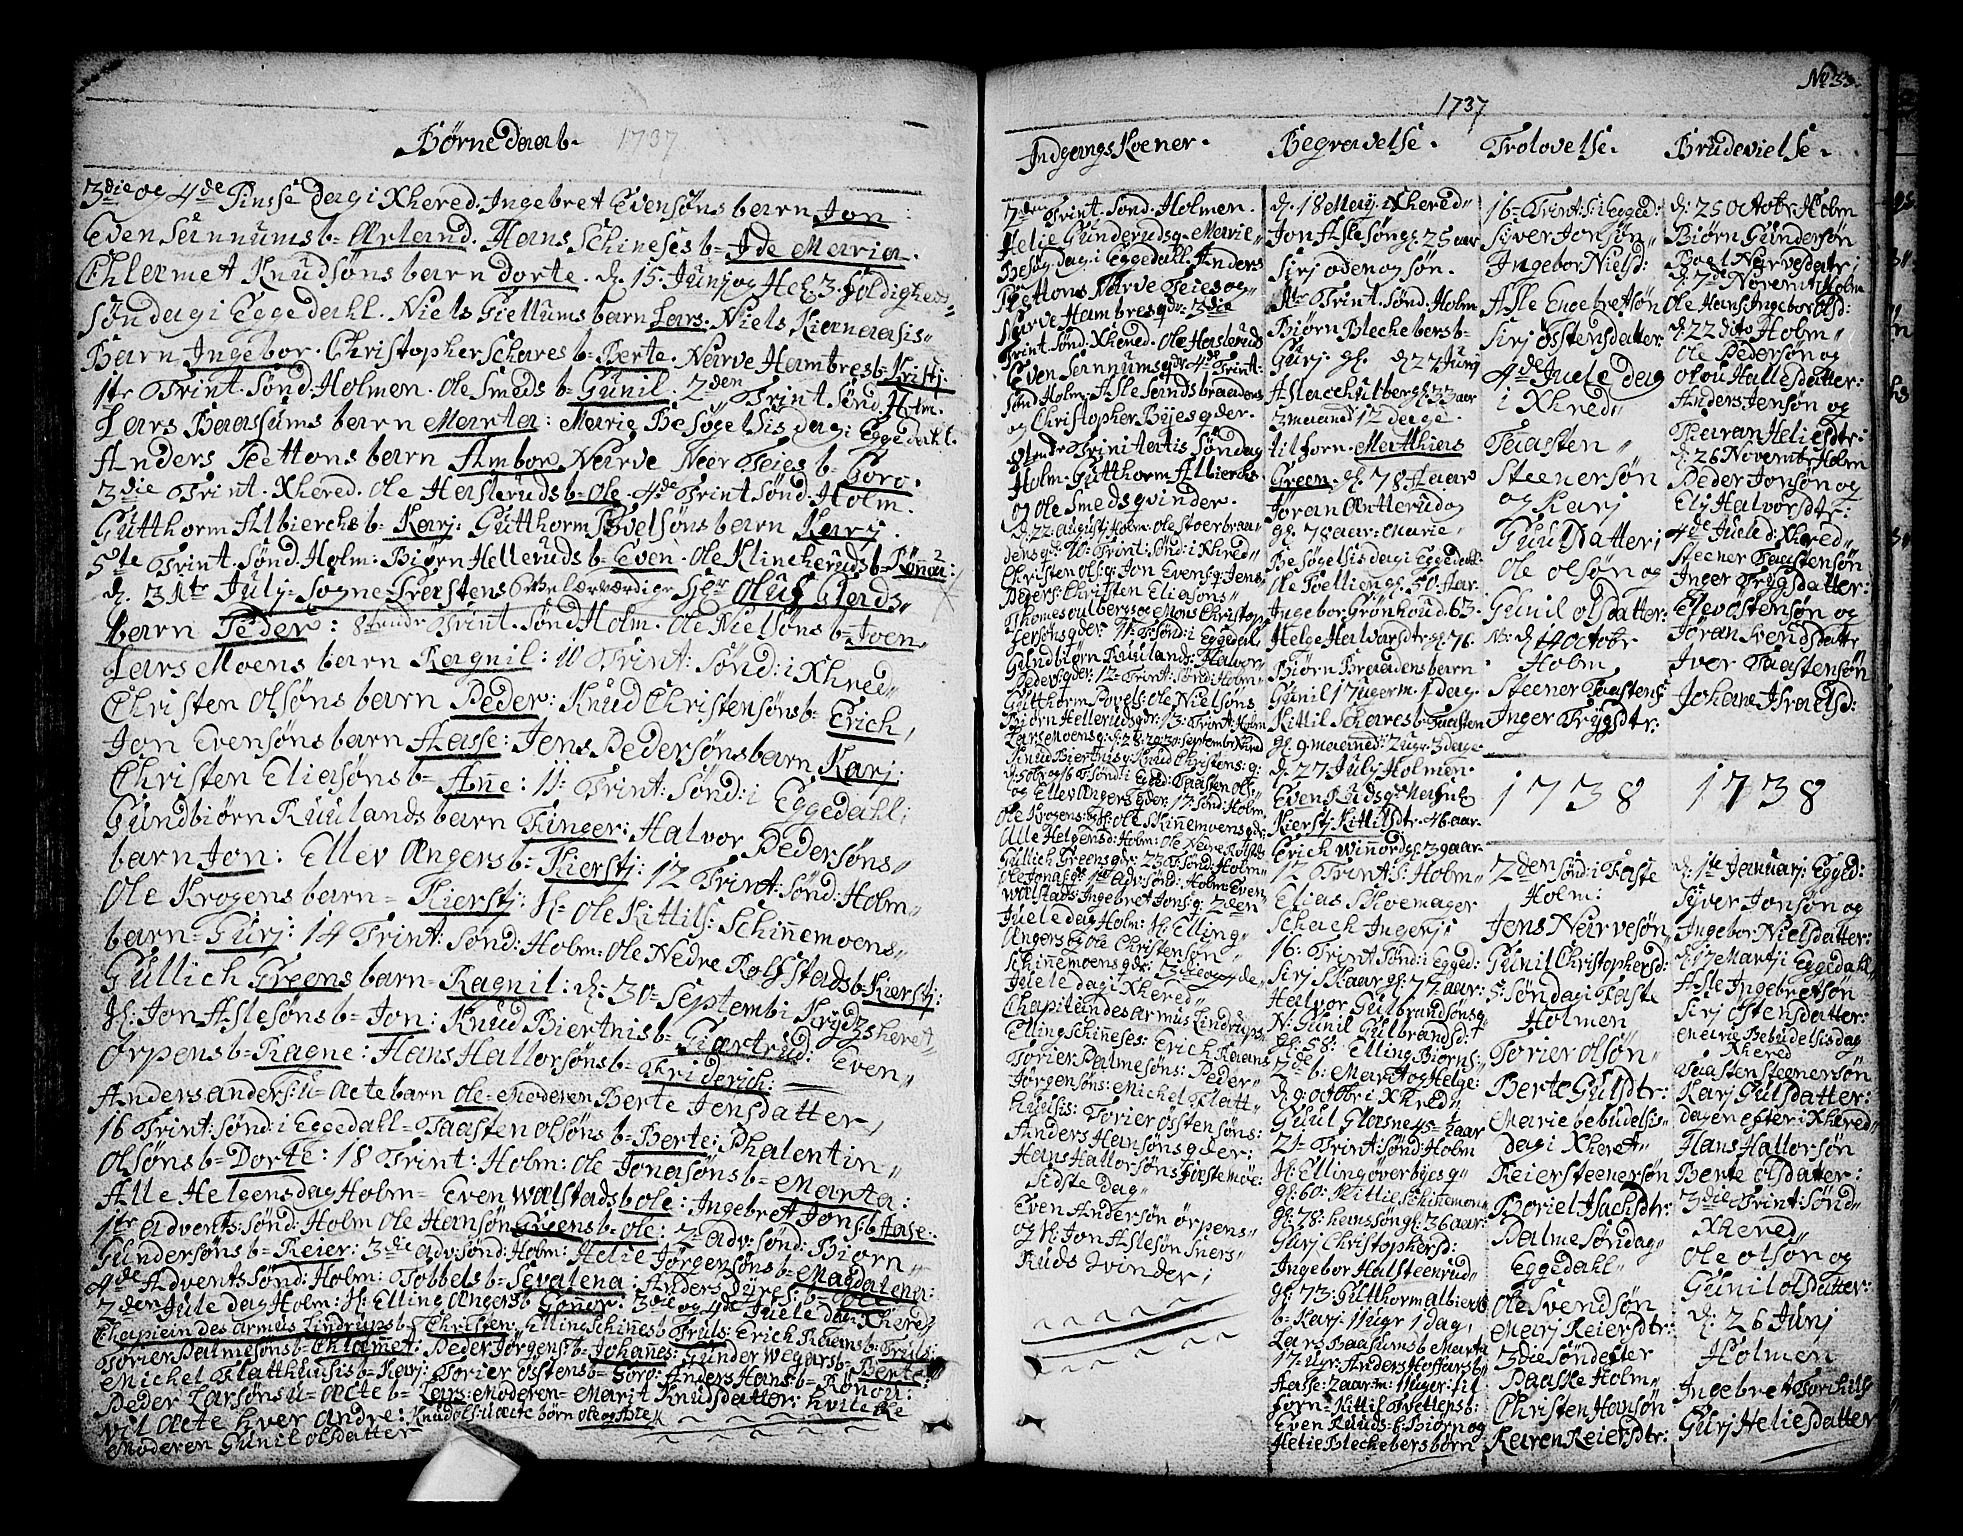 Børne daab. 1737
3die og 4de Pinsse dag i Khered. Ingebret Evensøns barn Jon
Even Sannums b= Arland. Hans Schineses b= Ide Maria.
Chlemet Knudsøns barn dorte. d. 15 Junj og Hel. 3.foldigheds=
Søndag i Eggedahl. Niels Giellums barn Lars. Niels Kiænaasis"
Barn Ingebor. Christopher Schares b= Berte. Narve Hambres b= Kristj
1te Trint. Sønd. Holmen. Ole Smeds b= Gunil. 2den Trint Sønd. Holm.
Lars Baassums barn Marta: Marie Besøgelsis dag i Eggedahl.
Anders Teettons barn Ambor. Narve Neer Teies b= Goro.
3die Trint. Khered. Ole Hasleruds b= Ole. 4de Trint Sønd. Holm.
Gutthorm Albierchs b= Karj: Gutthorm Povelsøns barn Karj.
5te Trint. Sønd. Holm: Biørn Helleruds b= Even. Ole Klinkeruds b= Rønou:
d. 31te July= Sogne=Præstens velærværdige Hr Oluf Glads"
barn Peder: 8tende Trint. Sønd Holm. Ole Nielsøns b= Joen
Lars Moens barn Ragnil: 10 Trint: Sønd: i Khred"
Christen Olsøns barn Peder: Knud Christensøns b= Erich,
Jon Evensøns barn Aasse: Jens Pedersøns barn Karj:
Christen Eliasøns b= Anne: 11: Trint: Sønd: i Eggedahl:
Gundbiørn Ruulands barn Finger: Halvor Pedersøns"
barn Jon: Ellev Angers b= Kierstj: 12 Trint: Sønd: Holm"
Ole Krogens barn= Kierstj: H: Ole Kittils: Schinnemoens"
barn= Gurj: 14 Trint: Sønd: Holm: Ole Nedre Rolfstads b= Kierstj:
Gullich Greens barn= Ragnil: d: 30= Septembr: Krydzheret"
H: Jon Aslesøns b= Jon: Knud Biertnis b= Giartrud: Even"
Ørpens b= Ragne: Hans Hallorsøns b= Friderich:
Anders anders: u= ægte barn Ole= Moderen Berte Jensdatter,
16 Trint: Sønd: i Eggedahl= Taasten Olsøns b= Berte: Phalentin"
Olsøns b= Dorte: 18 Trint: Holm: Ole Jonasøns b= Marta:
Alle Helgensdag Holm= Even Walstads b Ole: Ingebret Jons: b Aase:
1te Advents: Sønd: Holm Ole Hansøn Greens b= Ole: 2= Adv: Sønd: Biørn"
Gundersøns b= Reier: 3die Adv: Sønd: Holm: Helie Jørgensøns b= Magdalena:
4de Advents Sønd: Holm: Tobbels b= Sevalena: Anders dyres: b=
2den Jule dag Holm: H: Elling Angers b Goner: 3die og 4de Juele dag Khered,
Chapitein des Armus Lindrups b= Christen: Elling Schines b Truls: Erich Raam b= Truls:
Torier Palmesøns b= Chlamet: Peder Jørgens: b= Johanes: Gunder Wegars b= Berte:
Michel Flatthusis b= Karj: Torier Østens b= Goro: Anders Hans: b= Rønou:
Peder Larsøns u= ægte b= Lars: Moderen= Marjt Knudsdatter: hvilcke
vil ægte hver andre: Knud Ols: u ægte børn Ole og Ane
Moderen Gunil Olsdatter
No 33.
1737
Indgangs Koener.
7de Trint. Sønd. Holmen.
Helie Gunderuds q. Marie"
Besøg. dag i Eggedahl. Anders
Teettons Narve Teies og
Narve Hambres qdr. 3die
Trint. Sønd. Khered. Ole Hasleruds
Even Sannums qdr 4de Trint.
Sønd Holm. Asle Sandsbraadens
og Christopher Bejes qder.
Trinitatis Søndag
Holm. Gutthorm Albierchs
og Ole Smeds qvinder.
d. 22 augustj Holm. Ole Stoerbraa=
dens q. 10: Trint: Sønd: i Khred"
Christen Ols: q: Jon Evens: q: Jens
Pegers: Christen Eliasøns"
Thomes oulbergs og Mons Christop
Lersøns qder: 11: T: Sønd: i Eggedal
Gundbiørn Ruulands: Halvor
Peders: qder: 12= Trint: Sønd: Holm"
Gutthorm Povels: Ole Nielsøns
Biørn Helleruds qdr: 13: Trint: Holm
Lars Moens q: d: 28: 29: 30: Septembr Khred
Knud Biertnis q: Knud Christens: q:
og Ellev Angers qder: 17: Sønd: Holm
Ole Krogens: H: Ole Skinnemoens qdr:
Alle Helgensd: Holm: Ole Nedre Rolfst:
Gullich Greens qdr: 23 T Sønd: Holm"
Ole Jonas: q: 1te Adv: Sønd: Holm: Even
Walstads: Ingebret Jons: q: 2den"
Juele dag Holm: H: Elling"
Angers og Ole Christensøn"
Schinnemoens qder: 3die og 4de"
Juele dag i Khered"
Chapiteindes armus Lindrups
Elling Schinneses: Erich Raans
Torier Palmesøns: Peder"
Jørgensøns: Michel Flatt"
husis: Torier Østensøns:
Anders Hansøns qder:
Hans Hallorsøns Fastemoe:
Sidste dag"
Even Andersøn ørpens"
og H: Jon Aslesøn Sners"
Ruds Qvinder;
Begravelse.
d. 18 May. Khered"
Jon Aslesøn gl. 25 aar
Sirj oden og søn.
4te Trint. Sønd. Holm
Biørn Blechebers b=
Gurj. gl. d 27 Junj
Aslacchulberg gl. 33 aar
3 maand 12 dage
tilforn. Matthies
Green. gl. 78 Aar
Jøran Antterud og
gl. 78 aar: Marie"
Besøgelsis dag i Eggedahl
Ole Toelliengl. 50. Aar.
Ingebor Grønhoud. 63.
Helge Halvarsdtr gl. 76.
Biørn Braadens barn
Gunil 17 uger m. 1 dag.
Kittil Schares b= Taasten
gl. 9. maaned: 2 ugr: 3 dage
d. 27 Julj Holmen.
Even Ruds q:
Kierstj Kittilsdtr. 46 aar.
Erich Winnord gl. 39 aar
12 Trint: S: Holm=
Elias Skoemager
Schach Ingerj:
16: Trint Sønd: i Egged:
Sirj Skaar gl: 77 aar:
Halvor Gulbrandsøn q
N: Gunil Gulbrandsd:
gl: 58: Elling Biørns:
2de b: Mart og Helge:
d. 9 octobr i Khred"
Guul Glasne 45= ½ aar
21= Trint: Sønd: Holm
H: Elling øverbyes q"
gl: 60: Kittil Schinemoen
gl: 78: hans søn gl: 36 aar:
Gurj Christophersd:
Ingebor Halsteenrud"
gl: 73: Gutthorm albierch
b= Karj= 11 ugr 1 dag,
Lars Baashums b= Marta
17= ugr: Anders Hoffars b=
Aasse: 2 aar m: 11 uger: til
forn= Kittil Tvettens b:
Even Ruuds= b= Biørn og
Helie Blechebers børn
Trolovelse.
16= Trint: S: i Egged:
Siver Jonsøn"
Ingebor Nielsd:
Asle Engebretsøn
Sirj Østensdatter
4de Juele dag
i Khred"
Taasten"
Steenersøn
og Karj
Guulsdatter;
Ole Olsøn og
Gunil Olsdatter:
N: d 14 Octobr
Holm,
Steener Taastens:
Inger Trygsdtr:
1738
2den Sønd: i Faste
Holm:
Jens Narvesøn
Gunil Christophersd:
5: Søndag i Faste
Holmen
Torier Olsøn"
Berte Gulsdtr:
Marie bebudelsis=
dag i Khret"
Reier Steenersøn
Boriel Isachsdtr:
Palme Søndag"
Eggedahl"
Ole Svendsøn
Marj Reiersdtr:
3die Sønd efter
Paaske Holm"
Christen Hansøn
Karen Reiersdtr:
Brudevielse.
d: 25 Octobr Holm
Biørn Gundersøn
Boel Narvesdatr;
d: 7de Novembr Holm
Ole Hans: Ingebor Olsd:
d: 22 dito Holm"
Ole Pedersøn og
Olou Hallesdatter:
Anders Jensøn og
Tharan Heliesdtr:
d. 26 Novembr Holm
Peder Jonsøn og
Elj Halvorsdtr:
4de Juele d: Khred"
Steener Taastensøn
Inger Trygsdatter:
Elev Østensøn og
Jøran Svendsdatr
Iver Taastensøn
Johane Israelsd:
1738
d: 1te Januarj: Egged:
Syver Jonsøn og
Ingebor Nielsdatter:
d: 17 Martj i Eggedahl,
Asle Ingebretsøn
Sirj Østensdatter:
Marie Bebudelsis dag
Khered
Taasten Steenersøn
Karj Gulsdatter:
dagen efter i Khred"
Hans Hallorsøn
Berte Olsdatter:
3die Trint: Sønd"
Khered"
Ole Olsøn og
Gunil Olsdatter:
d: 26 Junj
Holmen
Ingebret Torkils
Gurj Heliesdatter